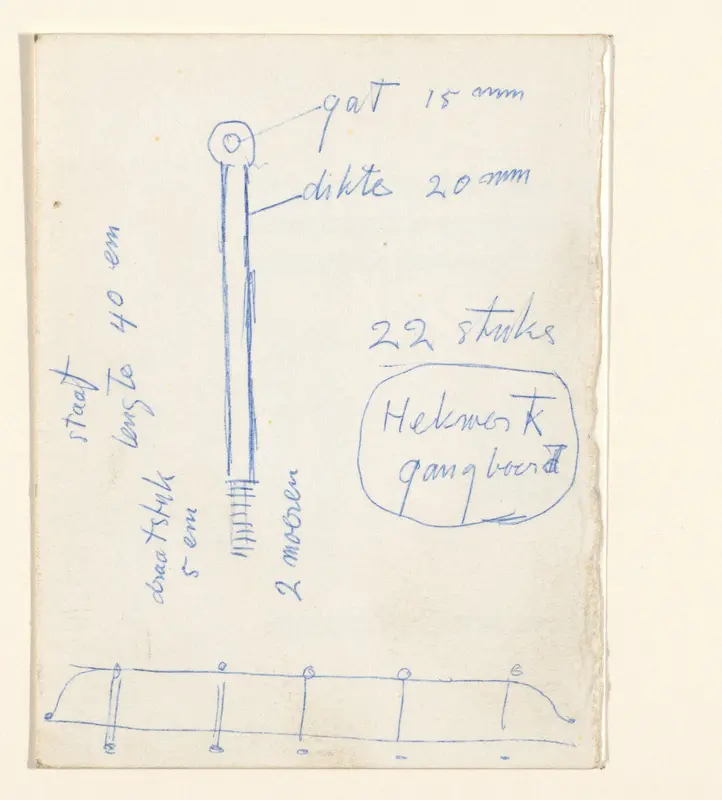 gat 15 mm
dikte 20 mm
staaf
lengte 40 cm
22 stuks
Hekwerk
gangboord
draatstuk
5 cm
2 moeren